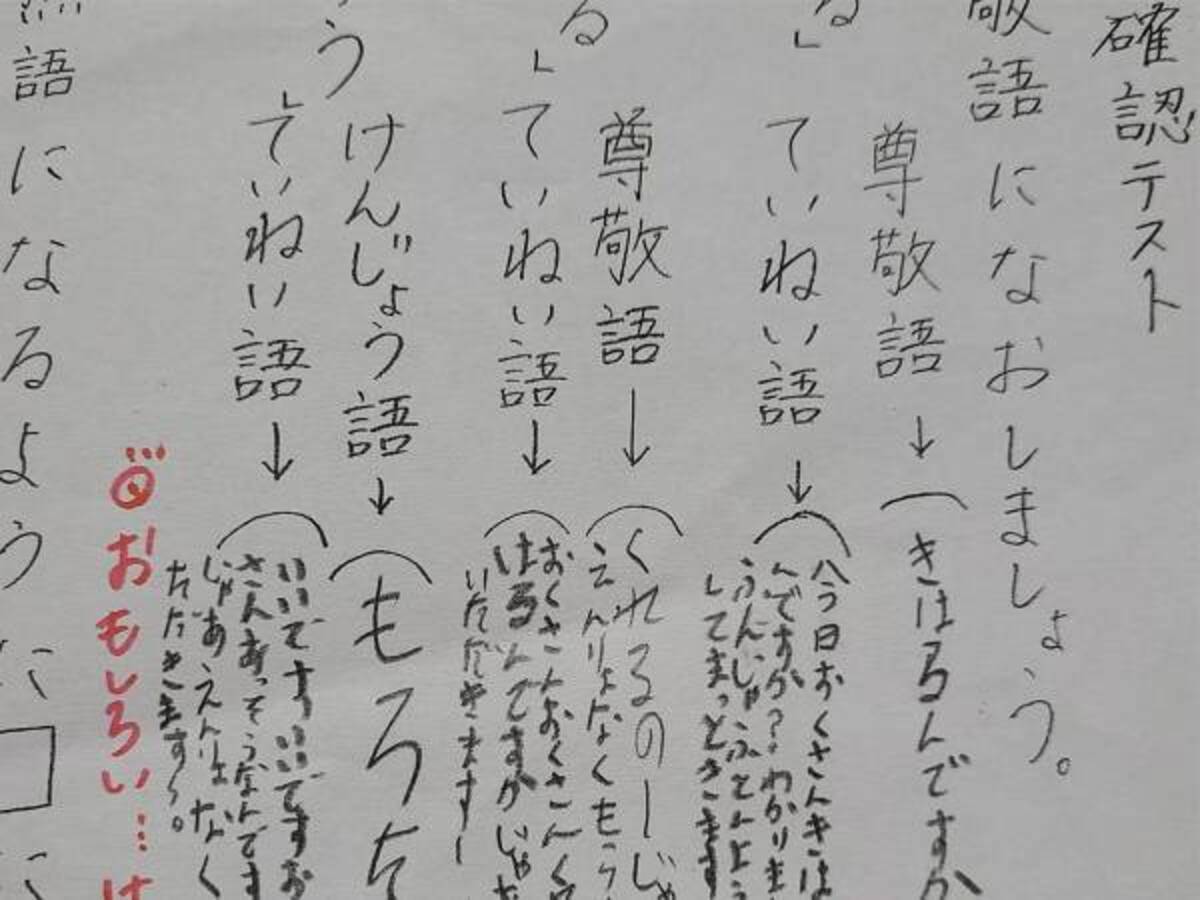 確認テスト
敬語になおしましょう。
尊敬語→（きはるんですか
る」
ていねい語→（今日おくさんきは
んですか？わかりま
ふんじゃ
してまっときます
る
尊敬語→（くれるのーじゃ
えんりょなくもら
」ていねい語→（おくさんおくさんく
はるんですかじゃあ
いただきますー
う
けんじょう語→（もろた
」ていねい語→（いいですいいですお
さんあっそうなんです
じゃあえんりょなく
ただきます〜。
おもしろい…け
語になるように□に